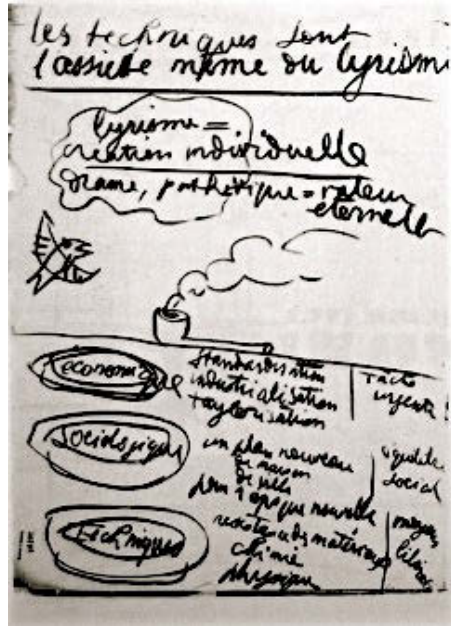 les techniques sont
l'assiette même du lyrisme
lyrisme =
création individuelle
drame, pathétique = valeur
éternelle
économique
standardisation
industrialisation
taylorisation
urgente
sociologique
un plan nouveau
de maison
de ville
pour époque nouvelle
social
techniques
résistance des matériaux
chimie
physique